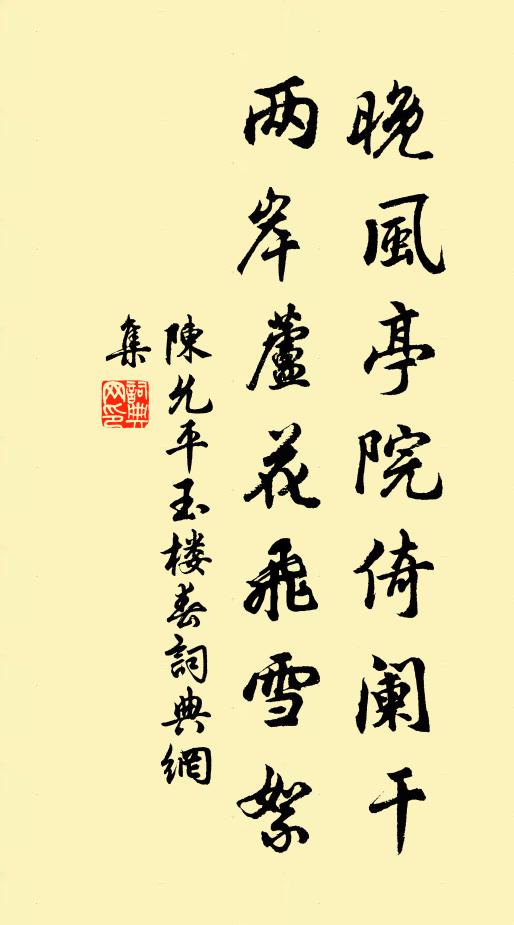 晚風亭院倚阑干
两岸蘆花飛雪絮
陳允平玉楼春詞典網
集
詞典
网印